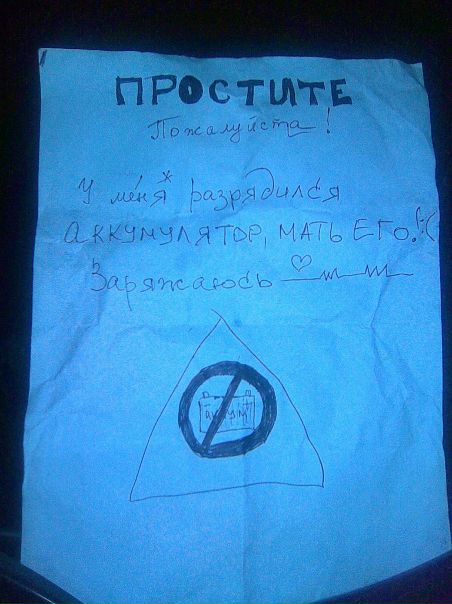 ПРОСТИТЕ
Пожалуйста!
У меня* разрядился
аккумулятор, мать его! :(
Заряжаюсь